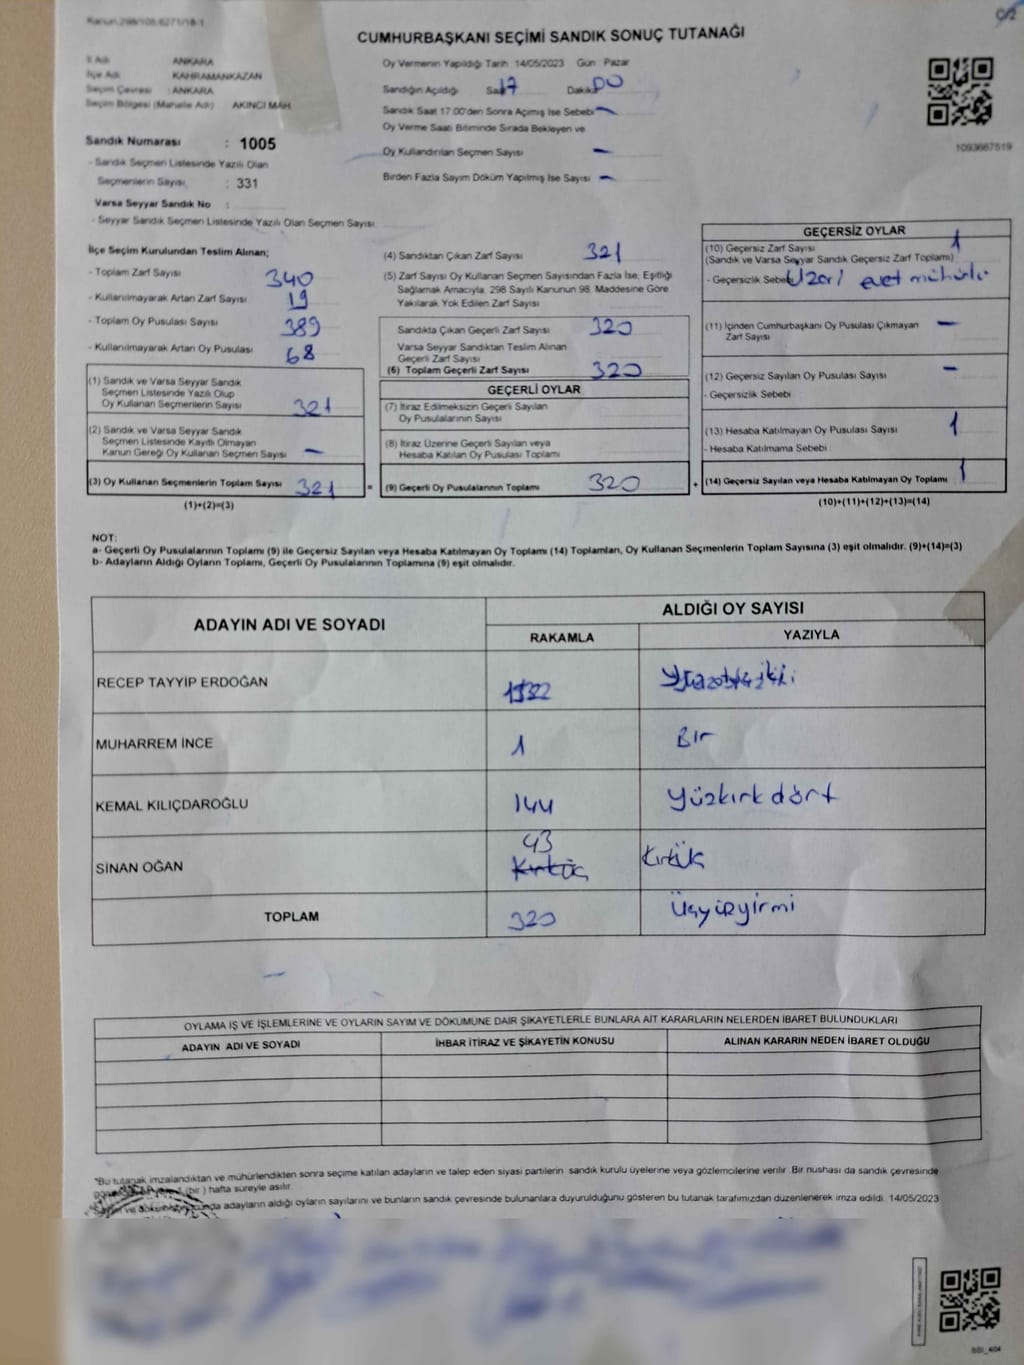 Kanun:298/105,6271/18-1
C/2
CUMHURBAŞKANI SEÇİMİ SANDIK SONUÇ TUTANAĞI
İl Adı ANKARA
İlçe Adı KAHRAMANKAZAN
Seçim Çevresi : ANKARA
Seçim Bölgesi (Mahalle Adı) AKINCI MAH
Oy Vermenin Yapıldığı Tarih 14/05/2023 Gün : Pazar
Sandığın Açıldığı Saat 17 Dakika 00
Sandık Saat 17:00'den Sonra Açılmış İse Sebebi —
Oy Verme Saati Bitiminde Sırada Bekleyen ve
Oy Kullandırılan Seçmen Sayısı —
Birden Fazla Sayım Döküm Yapılmış İse Sayısı —
1093667519
Sandık Numarası : 1005
- Sandık Seçmen Listesinde Yazılı Olan
Seçmenlerin Sayısı : 331
Varsa Seyyar Sandık No :
- Seyyar Sandık Seçmen Listesinde Yazılı Olan Seçmen Sayısı
İlçe Seçim Kurulundan Teslim Alınan;
- Toplam Zarf Sayısı 340
- Kullanılmayarak Artan Zarf Sayısı 19
- Toplam Oy Pusulası Sayısı 389
- Kullanılmayarak Artan Oy Pusulası 68
(1) Sandık ve Varsa Seyyar Sandık
Seçmen Listesinde Yazılı Olup
Oy Kullanan Seçmenlerin Sayısı 321
(2) Sandık ve Varsa Seyyar Sandık
Seçmen Listesinde Kayıtlı Olmayan
Kanun Gereği Oy Kullanan Seçmen Sayısı —
(3) Oy Kullanan Seçmenlerin Toplam Sayısı 321
(1)+(2)=(3)
(4) Sandıktan Çıkan Zarf Sayısı 321
(5) Zarf Sayısı Oy Kullanan Seçmen Sayısından Fazla İse, Eşitliği
Sağlamak Amacıyla, 298 Sayılı Kanunun 98. Maddesine Göre
Yakılarak Yok Edilen Zarf Sayısı
Sandıkta Çıkan Geçerli Zarf Sayısı 320
Varsa Seyyar Sandıktan Teslim Alınan
Geçerli Zarf Sayısı
(6) Toplam Geçerli Zarf Sayısı 320
GEÇERLİ OYLAR
(7) İtiraz Edilmeksizin Geçerli Sayılan
Oy Pusulalarının Sayısı
(8) İtiraz Üzerine Geçerli Sayılan veya
Hesaba Katılan Oy Pusulası Toplamı
= (9) Geçerli Oy Pusulalarının Toplamı 320 +
GEÇERSİZ OYLAR
(10) Geçersiz Zarf Sayısı 1
(Sandık ve Varsa Seyyar Sandık Geçersiz Zarf Toplamı)
- Geçersizlik Sebebi Üzeri evet mühürlü
(11) İçinden Cumhurbaşkanı Oy Pusulası Çıkmayan —
Zarf Sayısı
(12) Geçersiz Sayılan Oy Pusulası Sayısı —
- Geçersizlik Sebebi
(13) Hesaba Katılmayan Oy Pusulası Sayısı 1
- Hesaba Katılmama Sebebi
(14) Geçersiz Sayılan veya Hesaba Katılmayan Oy Toplamı 1
(10)+(11)+(12)+(13)=(14)
NOT:
a- Geçerli Oy Pusulalarının Toplamı (9) ile Geçersiz Sayılan veya Hesaba Katılmayan Oy Toplamı (14) Toplamları, Oy Kullanan Seçmenlerin Toplam Sayısına (3) eşit olmalıdır. (9)+(14)=(3)
b- Adayların Aldığı Oyların Toplamı, Geçerli Oy Pusulalarının Toplamına (9) eşit olmalıdır.
ADAYIN ADI VE SOYADI
ALDIĞI OY SAYISI
RAKAMLA YAZIYLA
RECEP TAYYİP ERDOĞAN
MUHARREM İNCE 1 Bir
KEMAL KILIÇDAROĞLU 144 Yüzkırkdört
SİNAN OĞAN 43 Kırküç Kırkük
TOPLAM 320 Üçyüzyirmi
OYLAMA İŞ VE İŞLEMLERİNE VE OYLARIN SAYIM VE DÖKÜMÜNE DAİR ŞİKAYETLERLE BUNLARA AİT KARARLARIN NELERDEN İBARET BULUNDUKLARI
ADAYIN ADI VE SOYADI İHBAR İTİRAZ VE ŞİKAYETİN KONUSU ALINAN KARARIN NEDEN İBARET OLDUĞU
*Bu tutanak imzalandıktan ve mühürlendikten sonra seçime katılan adayların ve talep eden siyasi partilerin sandık kurulu üyelerine veya gözlemcilerine verilir. Bir nüshası da sandık çevresinde
(bir) hafta süreyle asılır.
ve dökümü sonucunda adayların aldığı oyların sayılarını ve bunların sandık çevresinde bulunanlara duyurulduğunu gösteren bu tutanak tarafımızdan düzenlenerek imza edildi. 14/05/2023